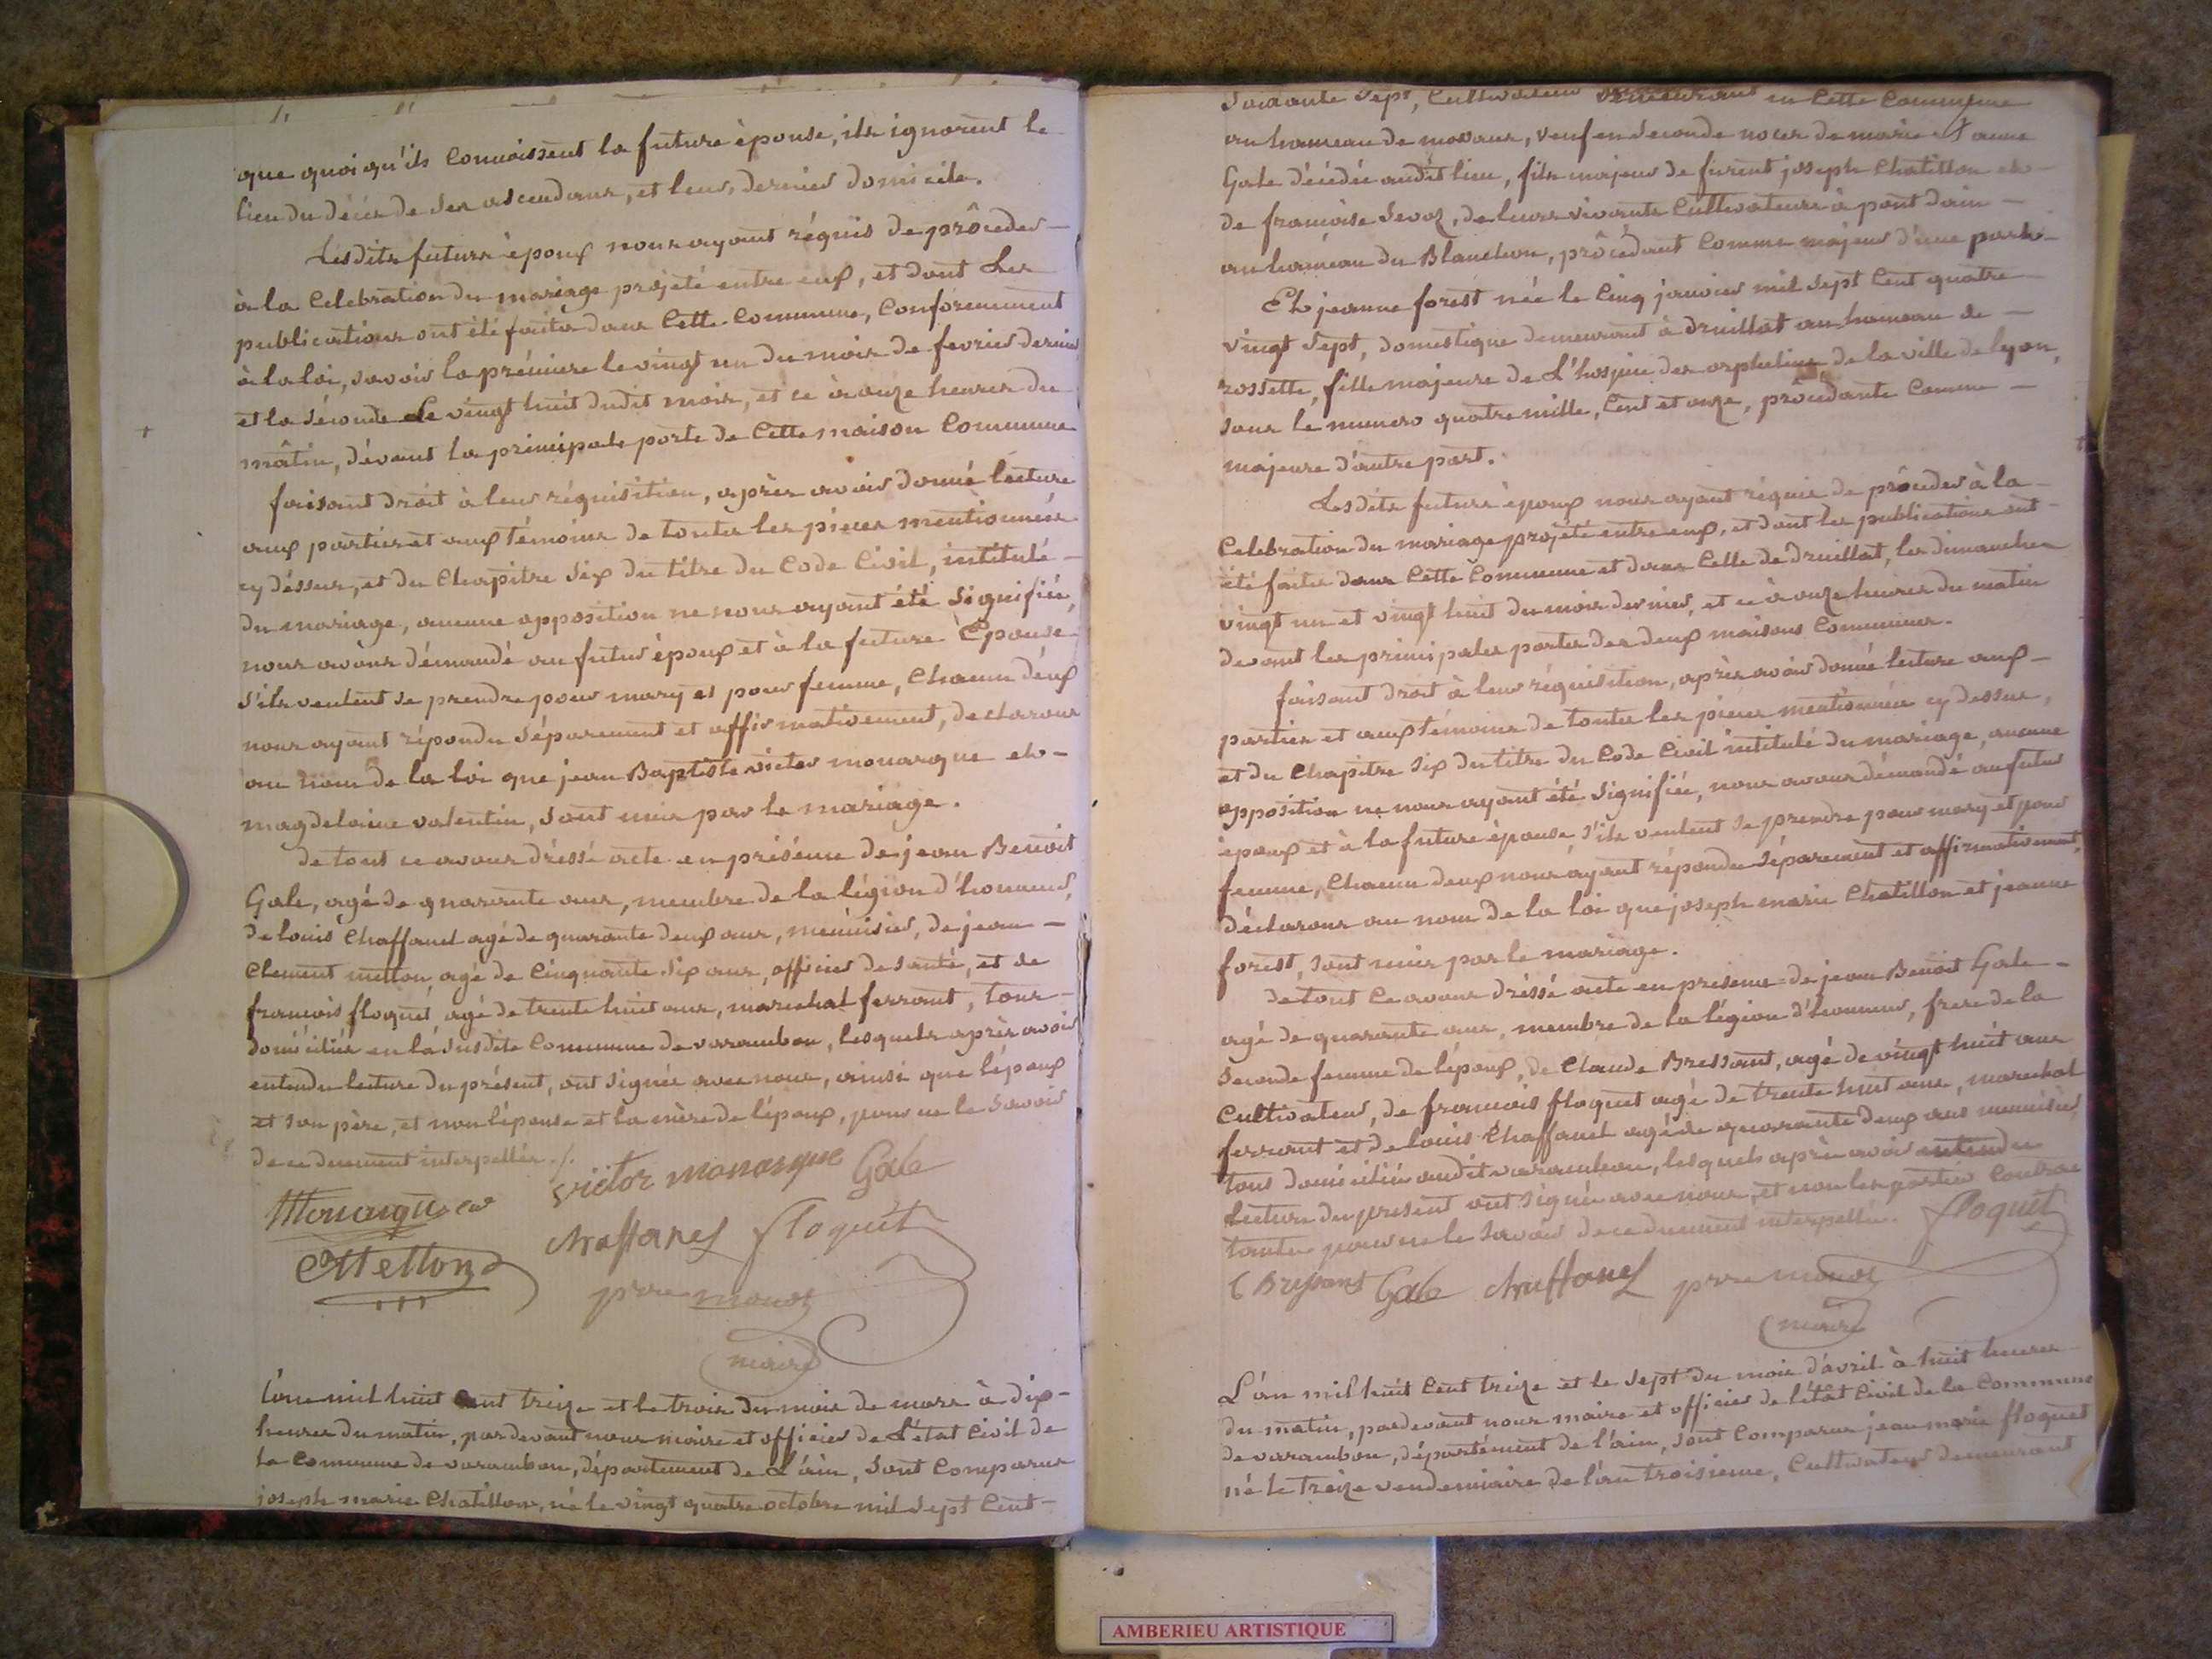 que quoi qu'ils connoissent la future èpouse, ils ignorent le
lieu du décès de ses ascendans, et leurs dernier domicile.
Lesdits futurs èpoux nous ayant réquis de prôceder
à la Celebration du mariage projeté entre eux, et dont Les
publications ont été faites dans Cette Commune, Conforémment
à la loi, savoir la prémiere le vingt un du mois de fevrier dernier
et la séconde Le vingt huit dudit mois, et ce à onze heures du
mâtin, dévant la principale porte de Cette maison Commune
faisant droit à leur réquisition, après avoir donné lecture
aux parties et aux témoins de toutes les pieces mentionnées
cy déssus, et du Chapitre Six du titre du Code Civil, intitulé
du mariage, aucune opposition ne nous ayant été Signifiée,
nous avons démandé au futur époux et à la future Epouse
s'ils veulent se prendre pour mary et pour femme, Chacun d'eux
nous ayant répondu séparement et affirmativement, declarons
au nom de la loi que jean Baptiste victor monarque et
magdelaine valentin, sont unis par le mariage.
de tout ce avons dréssé acte en présence de jean Benoit
Gale, agé de quarante ans, membre de la légion d'honneur,
de louis Chaffanel agé de quarante deux ans, ménuisier, de jean
Clement metton, agé de Cinquante Six ans, officier de santé, et de
francois floquet agé de trente huit ans, marechal ferrant, tous
domiciliés en la susdite Commune de varambon, lesquels après avoir
entendu lecture du présent, ont signés avec nous, ainsi que l'époux
et son père, et non l'épouse et la mère de l'époux, pour ne le savoir
de ce duement interpellés ./.
Monarque victor monarque Gale
CMetton Chaffanel floquet
monos
maire
L'an mil huit Cent treize et le trois du mois de mars à dix
heures du matin, pardevant nous maire et officier de L'état Civil de
la Commune de varambon, département de L'ain, sont Comparus
joseph marie Chatillon, né le vingt quatre octobre mil sept Cent
Soixante Sept, Cultivateur demeurant en Cette Commune
au hameau de , veuf en seconde noces de marie anne
Gale décédée audit lieu, fils majeur de furent joseph Chatillon et
de francoise Sevoz, de leurs vivants Cultivateurs à pont dain
au hameau du Blanchon, prôcédant Comme majeur d'une part
Et jeanne forest née le Cinq janvier mil Sept Cent quatre
vingt Sept, domestique demeurant à druillat au hameau de
rossette, fille majeure de L'hospice des orphelins de la ville de lyon,
sous le numero quatre mille, Cent et onze, prôcedante Comme
majeure d'autre part.
Lesdits futurs èpoux nous ayant réquis de prôceder à la
Celebration du mariage projeté entre eux, et dont les publications ont
été faites dans Cette Commune et dans Celle de druillat, les dimanches
vingt un et vingt huit du mois dernier, et ce à onze heures du matin
devant les principales portes des deux maisons Communes.
faisant droit à leur réquisition, après avoir donné lecture aux
parties et aux témoins de toutes les pieces mentionnées cy dessus,
et du Chapitre Six du titre du Code Civil intitulé du mariage, aucune
opposition ne nous ayant été Signifiée, nous avons démandé au futur
èpoux et à la future èpouse, s'ils veulent se prendre pour mary et pour
femme, Chacun deux nous ayant répondu séparement et affirmativement,
déclarons au nom de la loi que joseph marie Chatillon et jeanne
forest, sont unis par le mariage.
de tout Ce avons dréssé acte en presence de jean Benoit Gale
agé de quarante ans, membre de la légion d'honneur, frere de la
Seconde femme de l'époux, de Claude Bressant, agé de vingt huit ans
Cultivateur, de francois floquet agé de trente huit ans, marechal
ferrant et de louis Chaffanel agé de quarante deux ans menuisier
tous domiciliés audit varambon, lesquels après avoir entendu
lecture du present ont signés avec nous, et non les parties Contrac
tantes pour ne le savoir de ce duement interpellés. floquet
C Bressant Gale Chaffanel
maire
L'an mil huit Cent treize et le Sept du mois d'avril à huit heures
du matin, pardevant nous maire et officier de l'état Civil de la Commune
de varambon, département de l'ain, sont Comparus jean marie floquet
né le treize vendemiaire de l'an troisieme, Cultivateur demeurant
AMBERIEU ARTISTIQUE